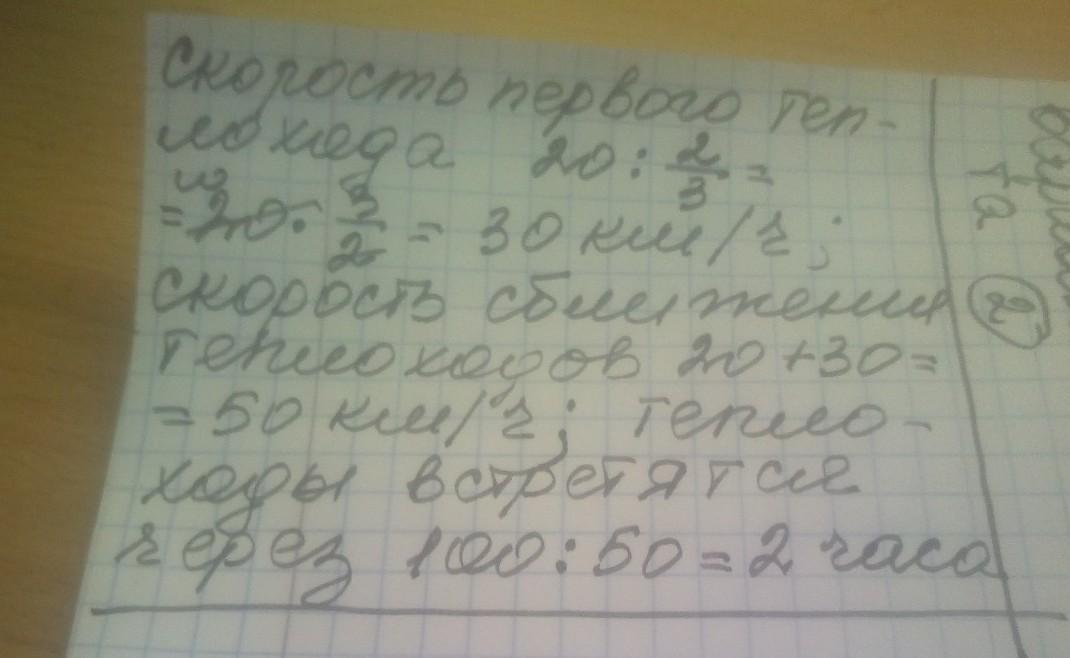 скорость первого теп-
лохода 20 : 2/3 =
= 20 · 3/2 = 30 км/ч;
скорость сближения
теплоходов 20 + 30 =
= 50 км/ч; тепло-
ходы встретятся
через 100 : 50 = 2 часа
та
2